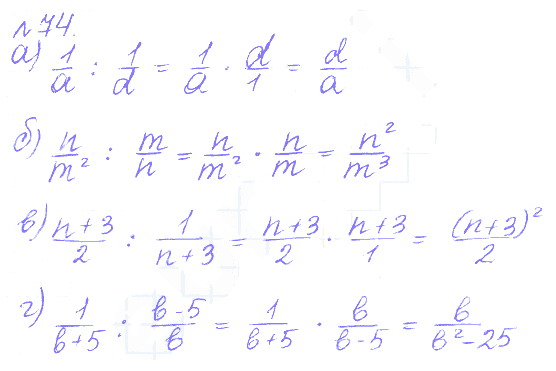 № 74.
а) 1/a : 1/d = 1/a · d/1 = d/a
б) n/m² : m/n = n/m² · n/m = n²/m³
в) (n+3)/2 : 1/(n+3) = (n+3)/2 · (n+3)/1 = (n+3)²/2
г) 1/(b+5) : (b-5)/b = 1/(b+5) · b/(b-5) = b/(b²-25)